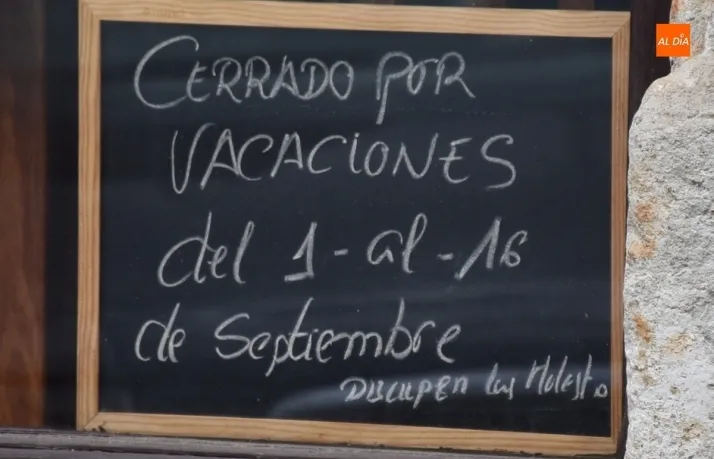 AL DÍA
CERRADO POR
VACACIONES
del 1 - al - 16
de Septiembre
DISCUPEN las Molest